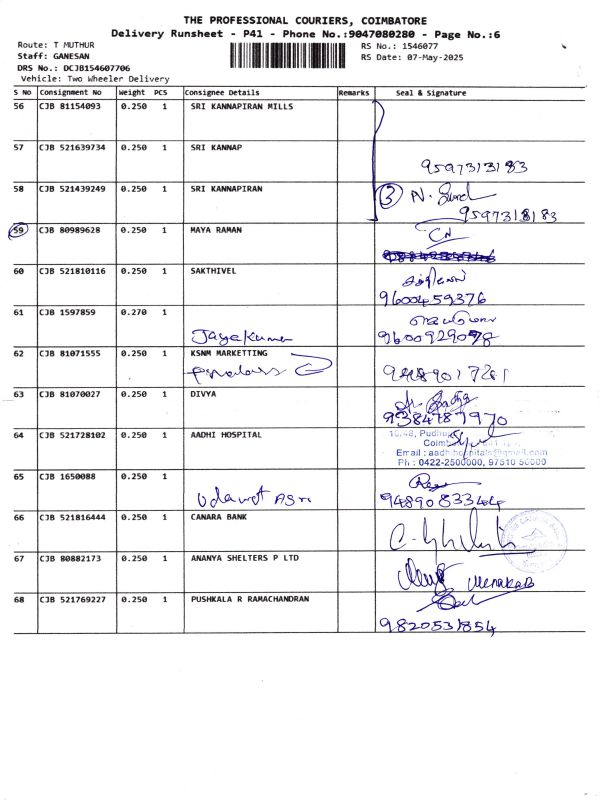 THE PROFESSIONAL COURIERS, COIMBATORE
Delivery Runsheet - P41 - Phone No.:9047080280 - Page No.:6
Route: T MUTHUR
RS No.: 1546077
Staff: GANESAN
RS Date: 07-May-2025
DRS No.: DCJB154607706
Vehicle: Two Wheeler Delivery
S No Consignment No Weight PCS Consignee Details Remarks Seal & Signature
56 CJB 81154093 0.250 1 SRI KANNAPIRAN MILLS
57 CJB 521639734 0.250 1 SRI KANNAP
9597313183
58 CJB 521439249 0.250 1 SRI KANNAPIRAN
3 N.
9597318183
59 CJB 80989628 0.250 1 MAYA RAMAN
60 CJB 521810116 0.250 1 SAKTHIVEL
சக்திவேல்
9600459376
61 CJB 1597859 0.270 1
Jayakumar
9600929078
62 CJB 81071555 0.250 1 KSNM MARKETTING
63 CJB 81070027 0.250 1 DIVYA
9384787970
64 CJB 521728102 0.250 1 AADHI HOSPITAL
Email : aadhihospitals@gmail.com
Ph : 0422-2500000, 97510 50000
65 CJB 1650088 0.250 1
9489083344
66 CJB 521816444 0.250 1 CANARA BANK
67 CJB 80882173 0.250 1 ANANYA SHELTERS P LTD
68 CJB 521769227 0.250 1 PUSHKALA R RAMACHANDRAN
9820531854